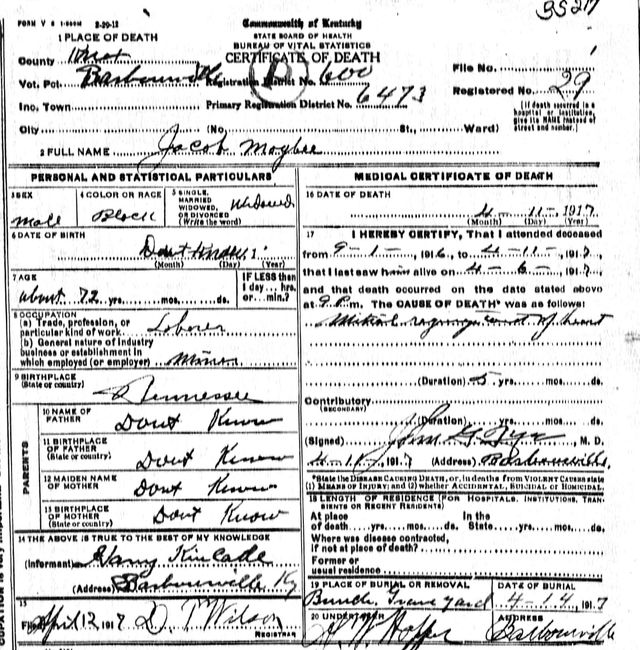 35217
FORM V S 1-500M 2-29-12
Commonwealth of Kentucky
STATE BOARD OF HEALTH
BUREAU OF VITAL STATISTICS
CERTIFICATE OF DEATH
1 PLACE OF DEATH
County Knox
Vot. Pct. Barbourville Registration District No. 600
File No.
Registered No. 29
Inc. Town Primary Registration District No. 6473
(If death occurred in a hospital or institution, give its NAME instead of street and number.)
City (No. St., Ward)
2 FULL NAME Jacob Maybee
PERSONAL AND STATISTICAL PARTICULARS
3 SEX
Male
4 COLOR OR RACE
Black
5 SINGLE, MARRIED WIDOWED, OR DIVORCED (Write the word)
Widowed
6 DATE OF BIRTH
Dont Know
(Month) (Day) (Year)
7 AGE
about 72 yrs. mos. ds.
IF LESS than 1 day hrs. or min.?
8 OCCUPATION
(a) Trade, profession, or particular kind of work Laborer
(b) General nature of industry business or establishment in which employed (or employer) Mines
9 BIRTHPLACE (State or country)
Tennessee
PARENTS
10 NAME OF FATHER Dont Know
11 BIRTHPLACE OF FATHER (State or country) Dont Know
12 MAIDEN NAME OF MOTHER Dont Know
13 BIRTHPLACE OF MOTHER (State or country) Dont Know
14 THE ABOVE IS TRUE TO THE BEST OF MY KNOWLEDGE
(Informant) Kincade
(Address) Barbourville Ky
15
Filed April 12, 1917 D. T. Wilson
REGISTRAR
MEDICAL CERTIFICATE OF DEATH
16 DATE OF DEATH
4 - 11 - 1917
(Month) (Day) (Year)
17 I HEREBY CERTIFY, That I attended deceased
from 9-1-, 1916, to 4-11-, 1917
that I last saw him alive on 4-6-, 1917
and that death occurred on the date stated above
at 9 P.m. The CAUSE OF DEATH* was as follows:
Mitral of heart
(Duration) 5 yrs. mos. ds.
Contributory
(SECONDARY)
(Duration) yrs. mos. ds.
(Signed) M. D.
4-1 , 1917 (Address) Barbourville
*State the DISEASE CAUSING DEATH, or, in deaths from VIOLENT CAUSES state (1) MEANS OF INJURY; and (2) whether ACCIDENTAL, SUICIDAL or HOMICIDAL.
18 LENGTH OF RESIDENCE (FOR HOSPITALS, INSTITUTIONS, TRANSIENTS OR RECENT RESIDENTS)
At place of death yrs. mos. ds. In the State yrs. mos. ds.
Where was disease contracted,
if not at place of death?
Former or usual residence
19 PLACE OF BURIAL OR REMOVAL
Bunch Grave yard
DATE OF BURIAL
4-14, 1917
20 UNDERTAKER
Hopper
ADDRESS
Barbourville